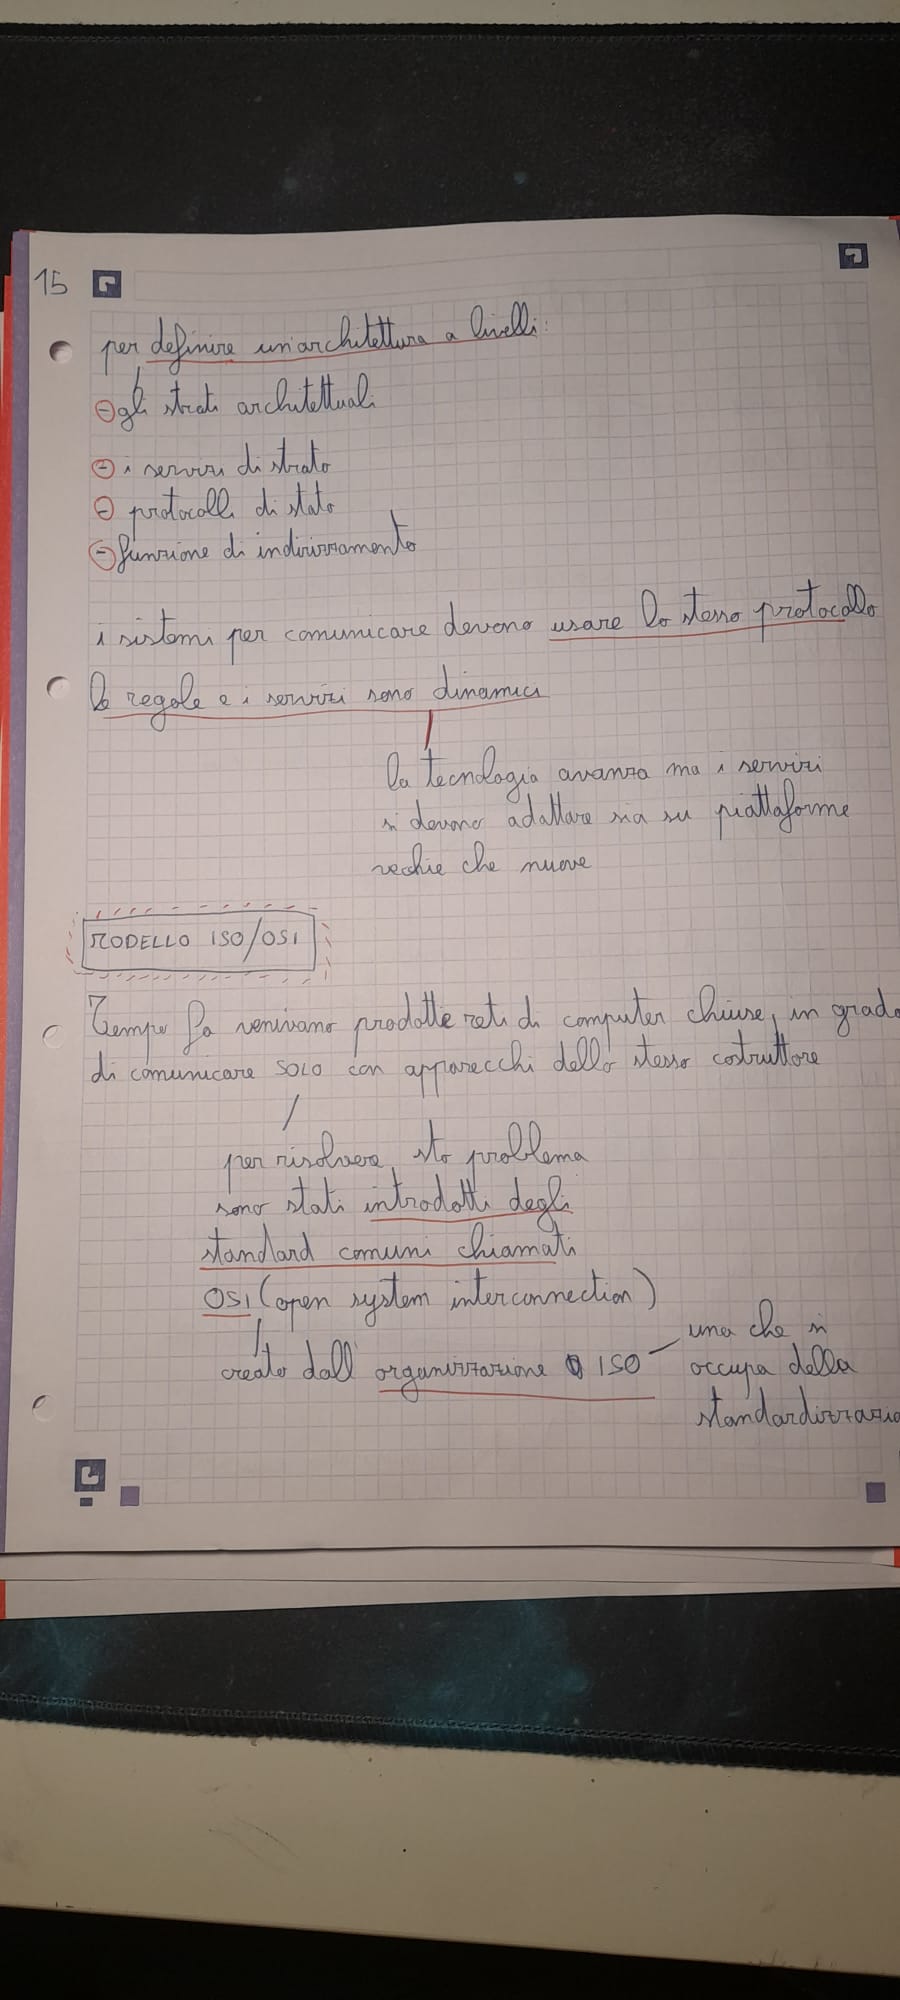 15
per definire un'architettura a livelli:
gli strati architettuali
i servizi di strato
protocolli di stato
funzione di indirizzamento
i sistemi per comunicare devono usare lo stesso protocollo
le regole e i servizi sono dinamici
la tecnologia avanza ma i servizi
si devono adattare sia su piattaforme
vechie che nuove
MODELLO ISO/OSI
Tempo fa venivano prodotte reti di computer chiuse, in grado
di comunicare SOLO con apparecchi dello stesso costruttore
per risolvere sto problema
sono stati introdotti degli
standard comuni chiamati
OSI (open system interconnection)
creato dall'organizzazione ISO
una che si
occupa della
standardizzazio